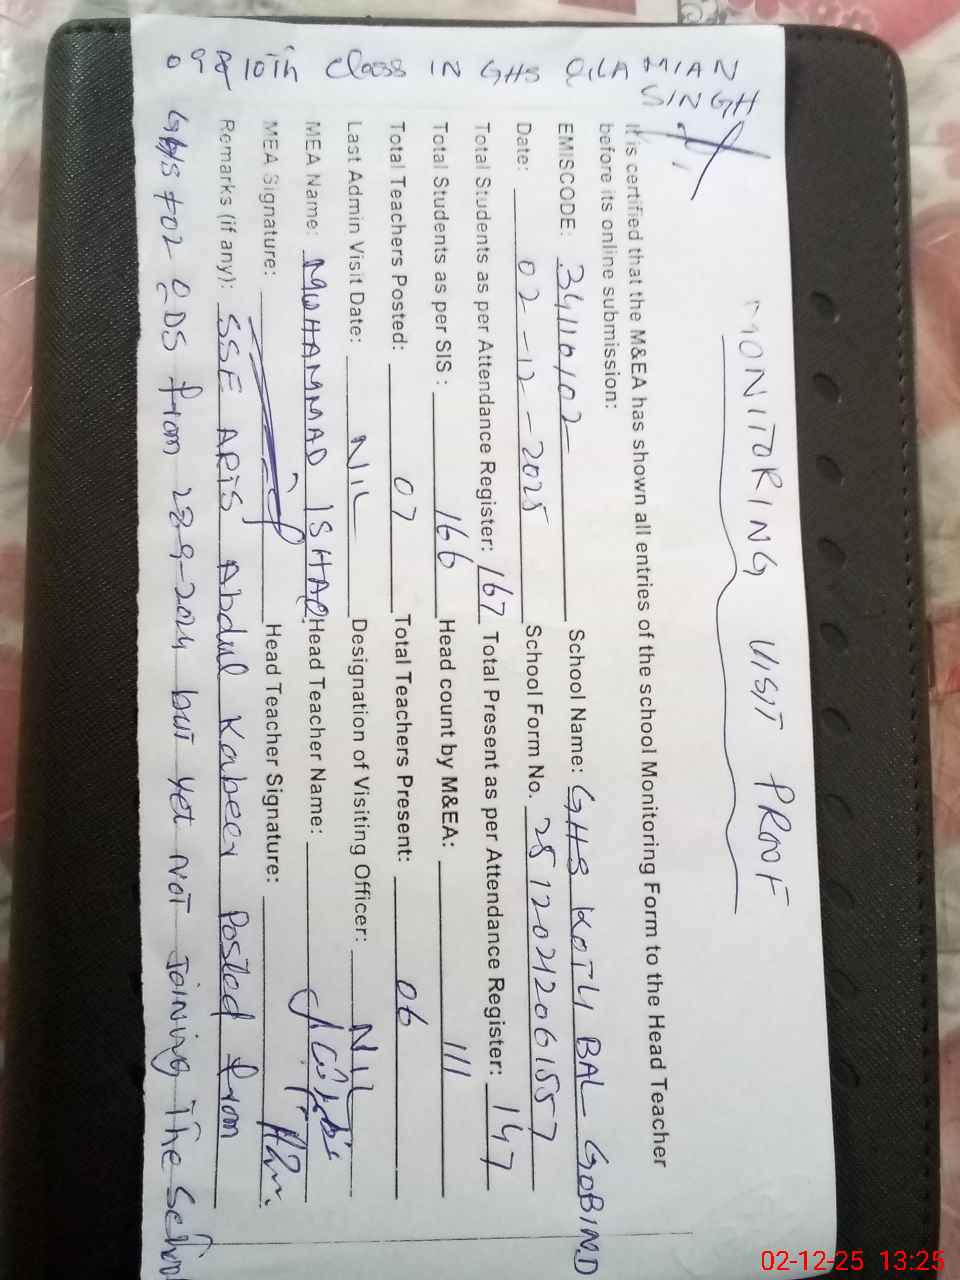 MONITORING VISIT PROOF
It is certified that the M&EA has shown all entries of the school Monitoring Form to the Head Teacher
before its online submission:
EMISCODE: 34110102 School Name: GHS KOTLI BAL GOBIND
Date: 02-12-2025 School Form No. 25120212061557
Total Students as per Attendance Register: 167 Total Present as per Attendance Register: 147
Total Students as per SIS : 166 Head count by M&EA: 111
Total Teachers Posted: 07 Total Teachers Present: 06
Last Admin Visit Date: NIL Designation of Visiting Officer: NIL
MEA Name: MUHAMMAD ISHAQ Head Teacher Name:
MEA Signature: Head Teacher Signature:
Remarks (if any): SSE ARTS Abdul Kabeer Posted from
from 28-9-2024 but yet NOT JOINING The School
10th Class IN GHS QILA MIAN
SINGH
02-12-25 13:25